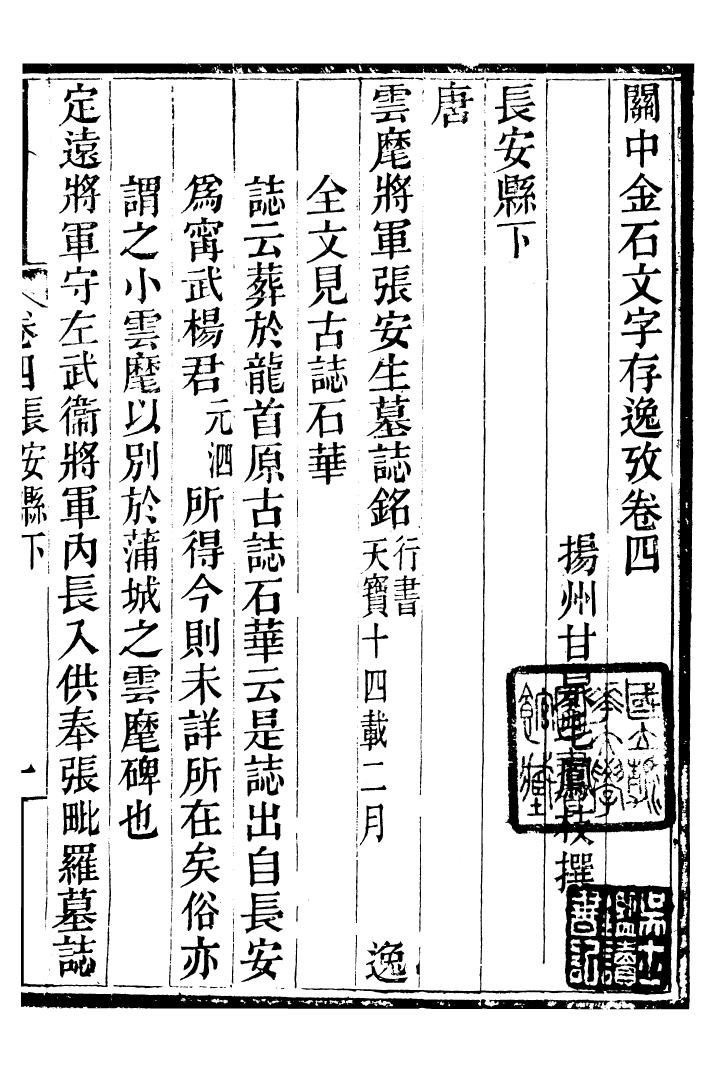 關中金石文字存逸攷卷四
揚州甘泉毛鳳枝撰
長安縣下
唐
雲麾將軍張安生墓誌銘 行書 天寶十四載二月 逸
全文見古誌石華
誌云葬於龍首原古誌石華云是誌出自長安
爲甯武楊君 元泗 所得今則未詳所在矣俗亦
謂之小雲麾以別於蒲城之雲麾碑也
定遠將軍守左武衞將軍內長入供奉張毗羅墓誌
卷四長安縣下
一